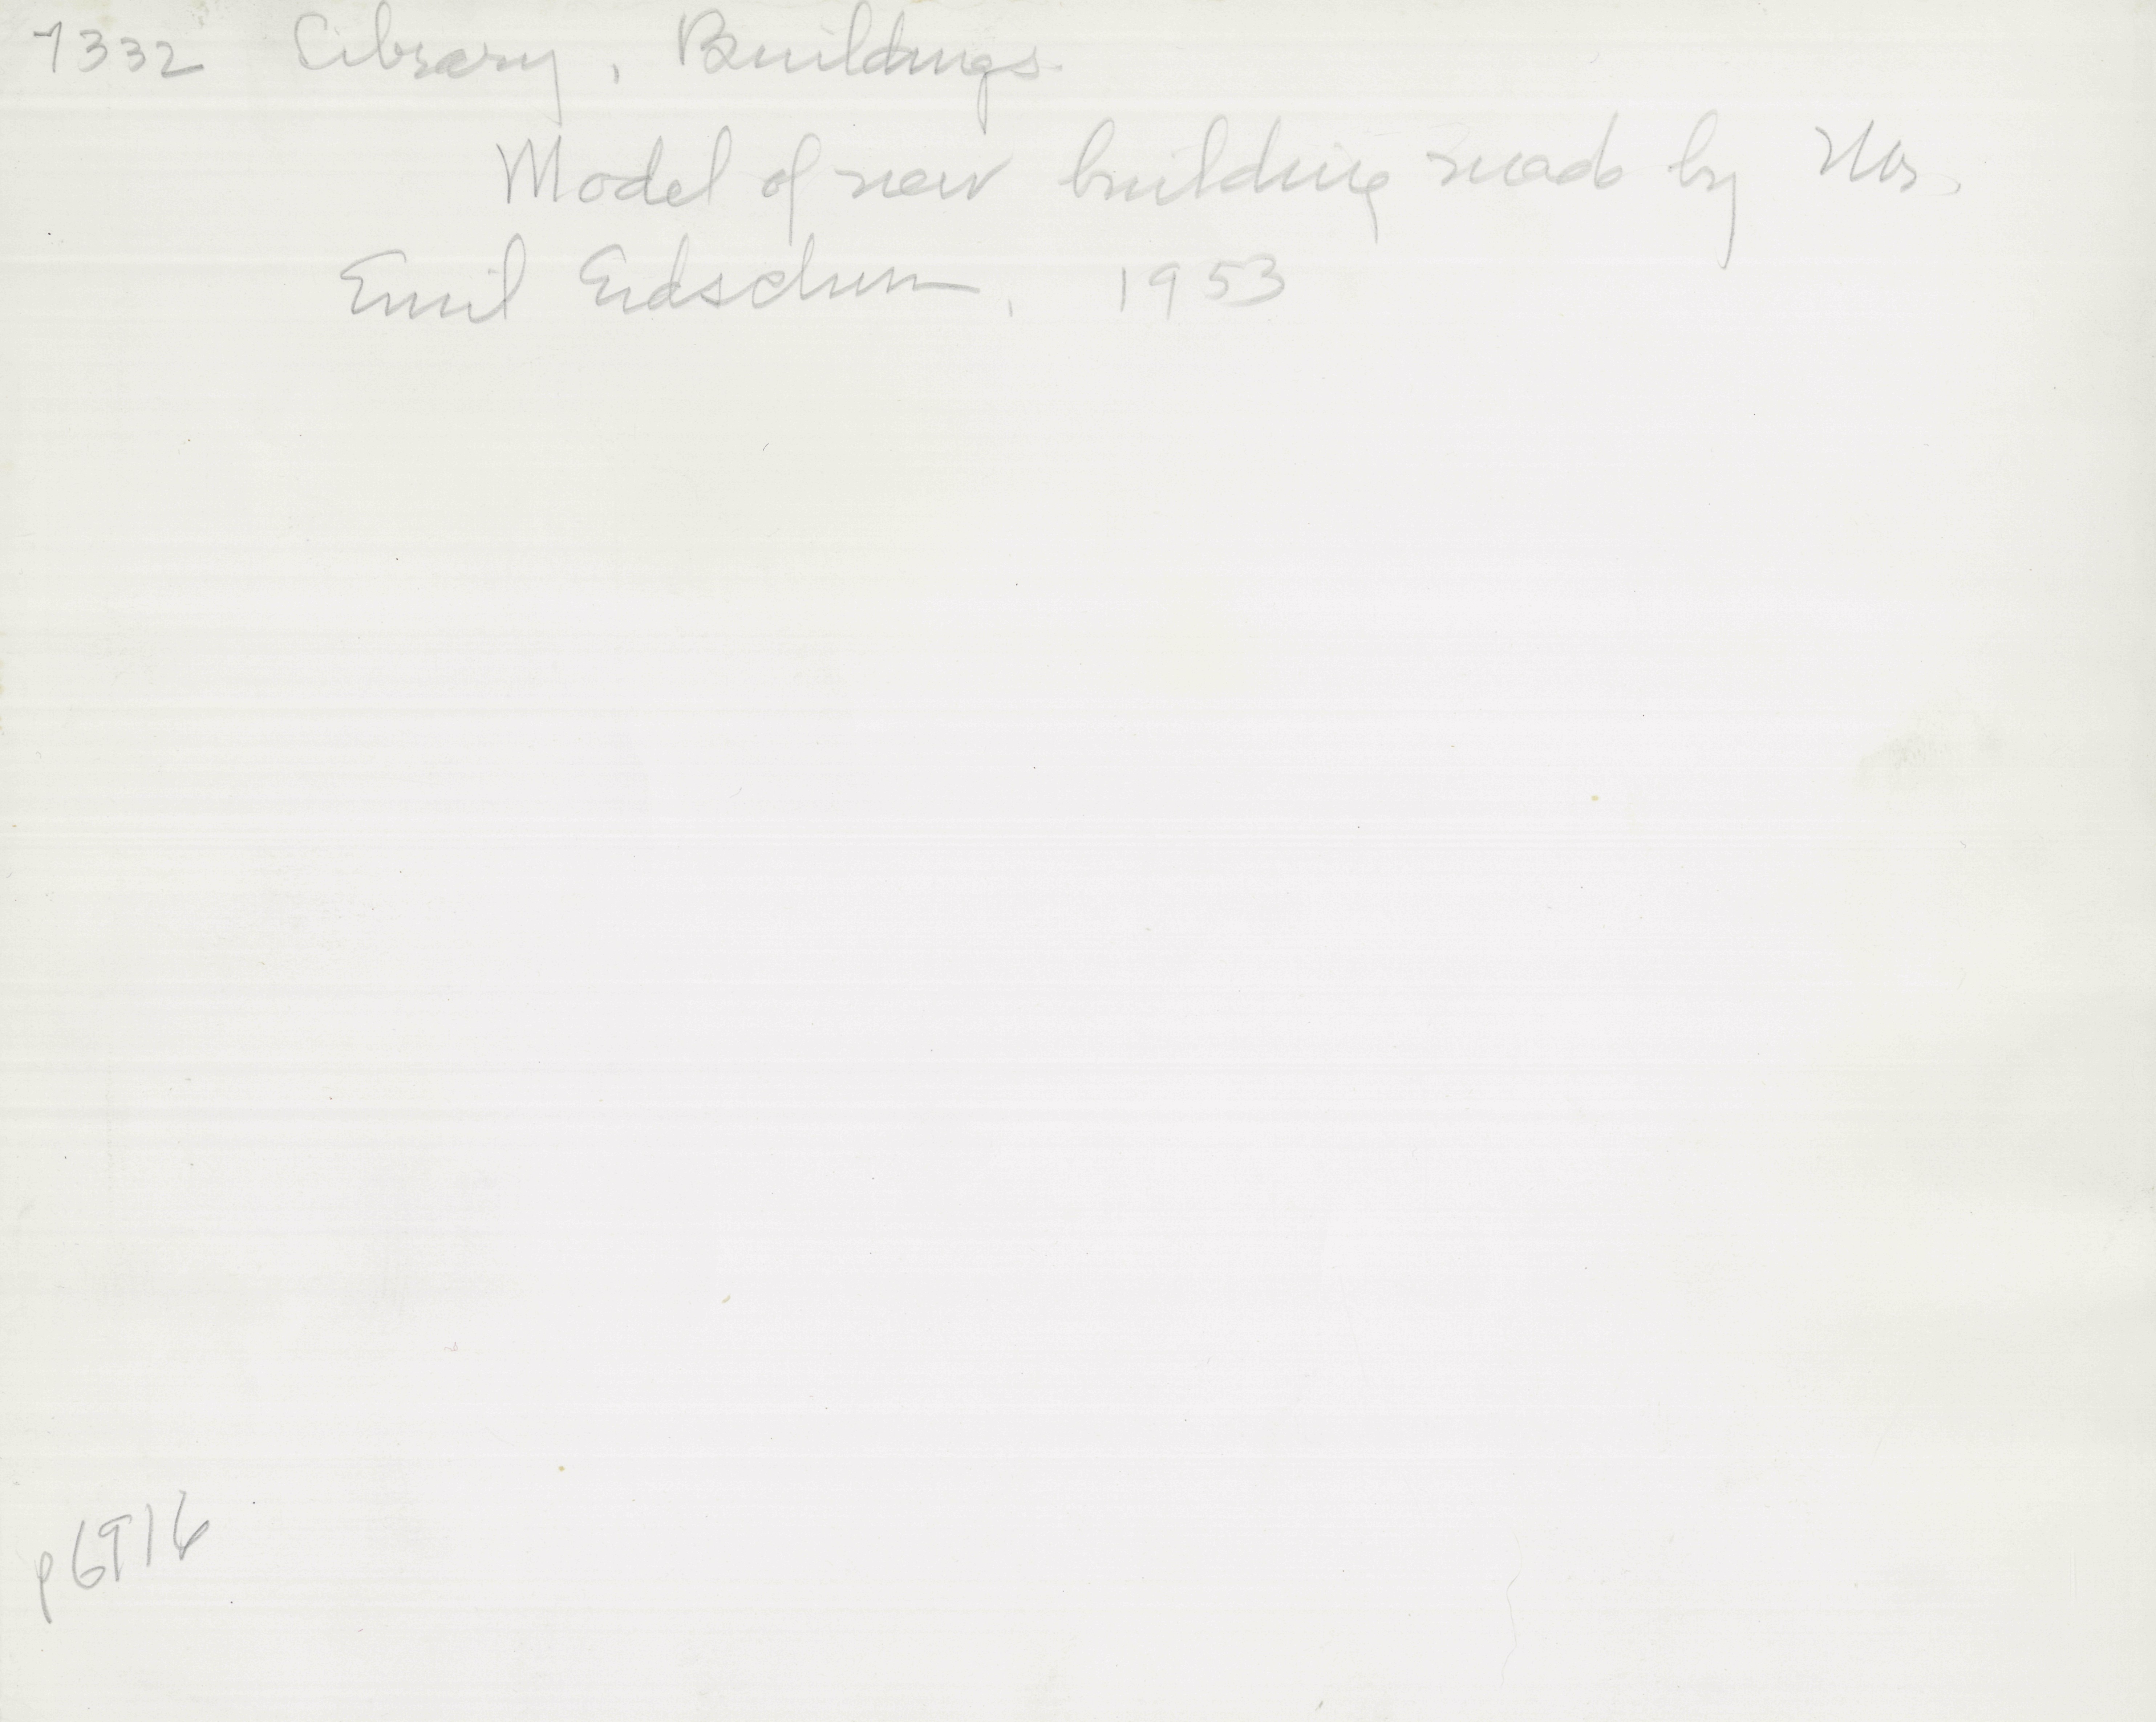 7332 Library, Buildings
Model of new building made by Mrs.
Emil 1953
p6916